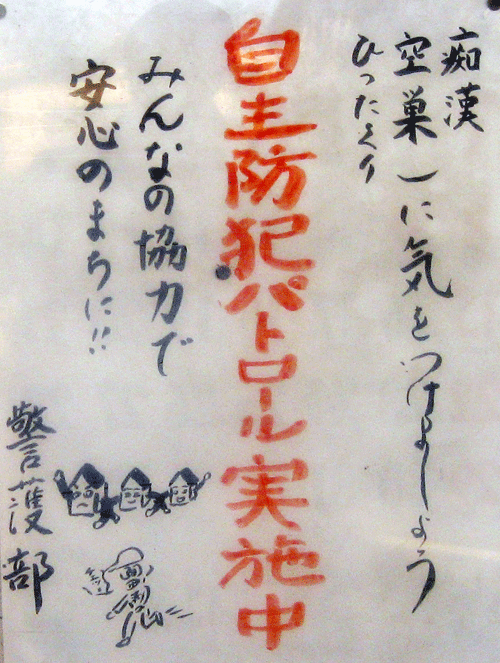 痴漢
空巣
ひったくり
に気をつけましょう
自主防犯パトロール実施中
みんなの協力で
安心のまちに!!
警護部